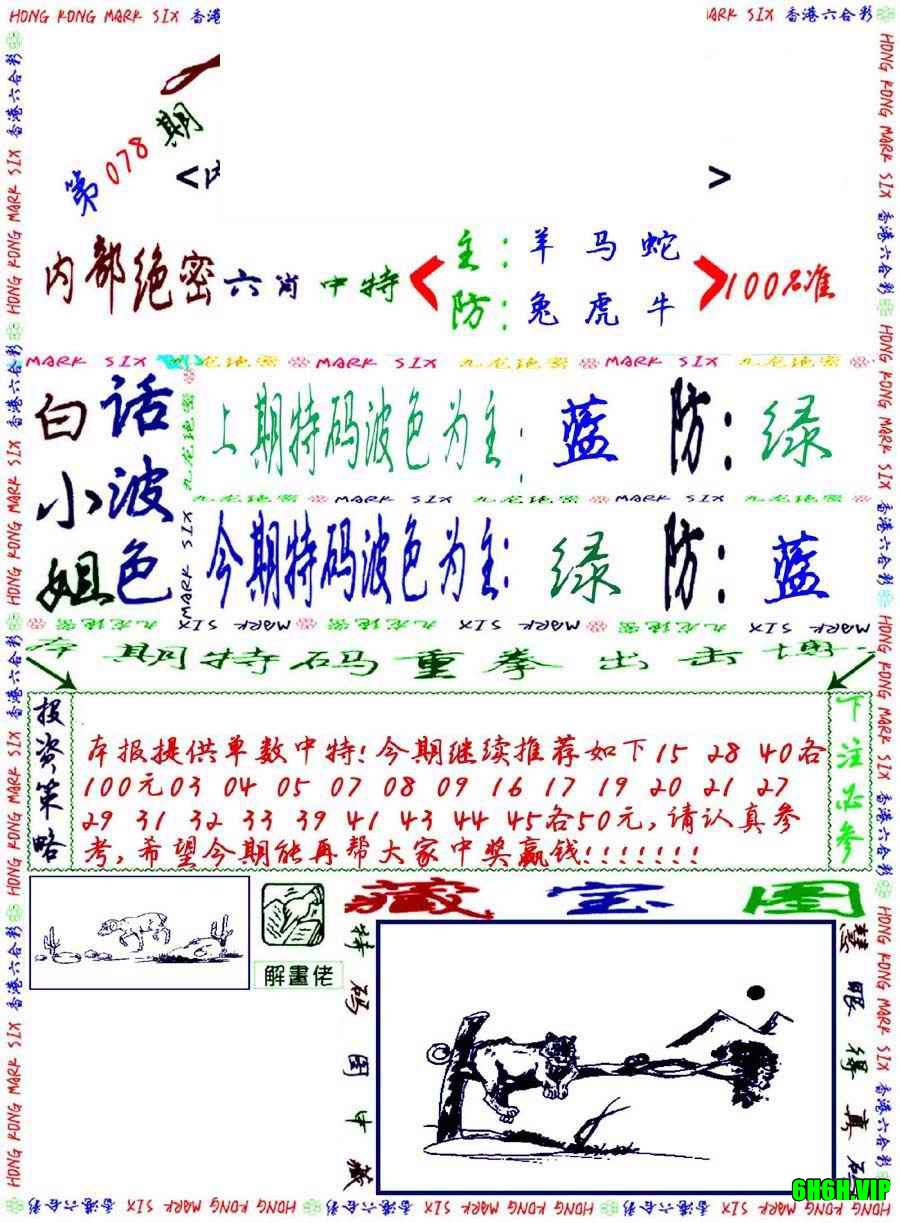 HONG KONG MARK SIX 香港
MARK SIX 香港六合彩
第078期
<
>
内部绝密六肖中特
主：羊 马 蛇
防：兔 虎 牛
100%准
MARK SIX 九龙绝密 MARK SIX 九龙绝密 MARK SIX 九龙绝密
白话
小波
姐色
上期特码波色为主：蓝 防：绿
九龙绝密 MARK SIX 九龙绝密 MARK SIX
今期特码波色为主：绿 防：蓝
MARK SIX 九龙绝密 MARK SIX 九龙绝密 MARK SIX 九龙绝密
期特码重拳出击
投资策略
本报提供单数中特!今期继续推荐如下15 28 40各
100元03 04 05 07 08 09 16 17 19 20 21 27
29 31 32 33 39 41 43 44 45各50元,请认真参
考,希望今期能再帮大家中奖赢钱!!!!!!!
下注必参
解畫佬
藏宝图
特码图中藏
慧眼得真
HONG KONG MARK SIX 香港六合彩
6H6H.VIP